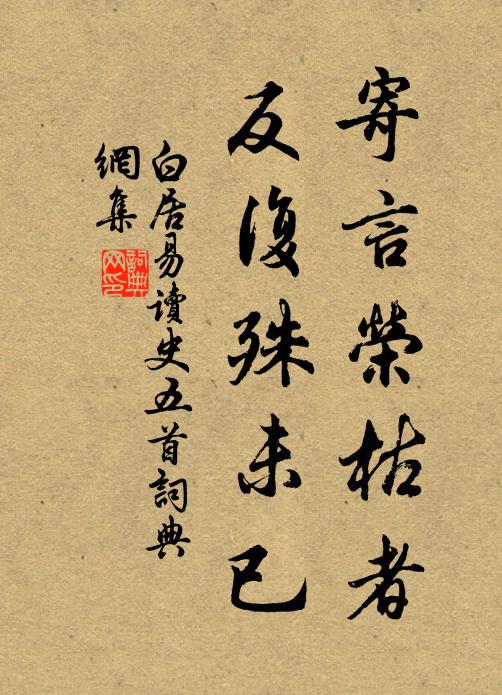 寄言榮枯者
反復殊未已
白居易讀史五首詞典
網集
詞典
网印